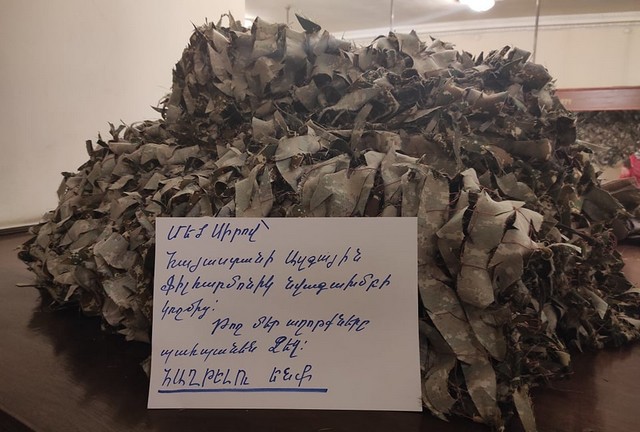 Մեծ Սիրով՝
Հայաստանի Ազգային
Ֆիլհարմոնիկ նվագախմբի
կողմից:
Թող մեր աղոթքները
պահպանեն Ձեզ:
ՀԱՂԹԵԼՈՒ ԵՆՔ